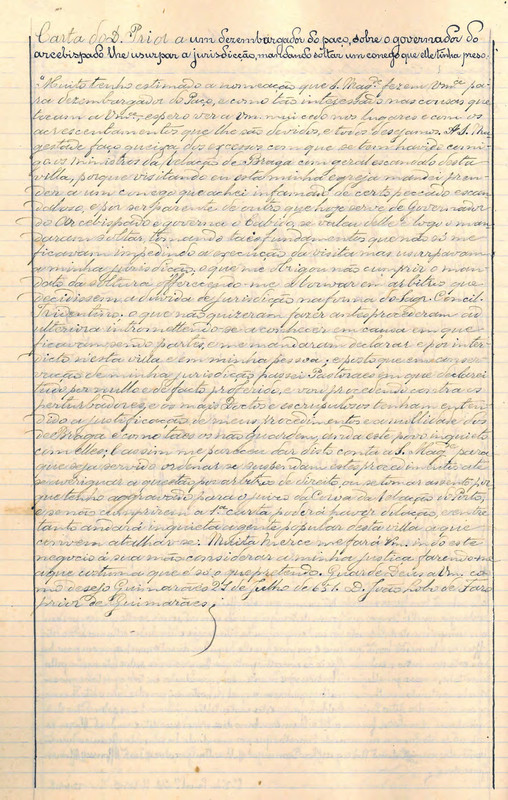 Carta do D. Prior a um dezembargador do paço, sobre o governador do
arcebispado lhe usurpar a jurisdicção, mandando soltar um conego que elle tinha preso.
"Muito tenho estimado a nomeação que S. Magde. fez em Vmce. pa-
ra dezembargador do Paço, e como tão interessão nas cousas que
tocam a Vmce. espero ver a Vm. mui cedo nos lugares e com os
acrescentamentos que lhe são devidos, e todos desejamos. A S. Ma-
gestade faço queixa dos excessos com que se tem havido comi-
go os ministros da Relação de Braga com geral escandalo desta
villa, porque visitando eu esta minha egreja mandei pren-
der a um conego que achei infamado de certo peccado escan-
daloso, e por ser parente de outro que hoje serve de Governador
do Arcebispado e governa o Cabido, se valeu dele e logo o man-
daram soltar, tomando taes fundamentos que não só me
ficavam impedindo a execução da visita mas usurpavam
a minha jurisdicção, o que me obrigou não cumprir o man-
dato da soltura offerecendo-me a louvar em arbitros que
decidissem a duvida de jurisdicção na forma do Sagr. Concil.
Tridentino, o que não quizeram fazer antes procederam ad
ulteriora intromettendo-se a conhecer em causa em que
ficavam sendo partes, e me mandaram declarar e pôr inter-
dicto n'esta villa e em minha pessoa; e posto que em conser-
vação de minha jurisdicção passei Pastoraes em que declarei
tudo por nullo e de facto proferido, e vou procedendo contra os
perturbadores, e os mais Doctos e escrupulosos tenham enten-
dido a justificação de meus procedimentos e a nullidade dos
de Braga e como taes os não guardem, anda este povo inquieto
com elles; e assim me pareceu dar disto conta a S. Magde. para
que seja servido ordenar se suspendam estes procedimentos até
se averiguar a questão por arbitros de direito, ou se tomar assento por
que tenho aggravado para o juizo da Coroa da Relação do Porto,
e se não cumprirem a 1ª carta poderá haver dilação, e entre
tanto andará inquieta a gente popular desta villa, o que
convem atalhar-se. Muita merce me fará Vm. indo este
negocio á sua mão considerar a minha justiça fazendo-me
a que costuma que é só o que pretendo. Guarde Deus a Vm. co-
mo desejo Guimarães 27 de Julho de 651. D. João Lobo de Faro
prior de Guimarães."